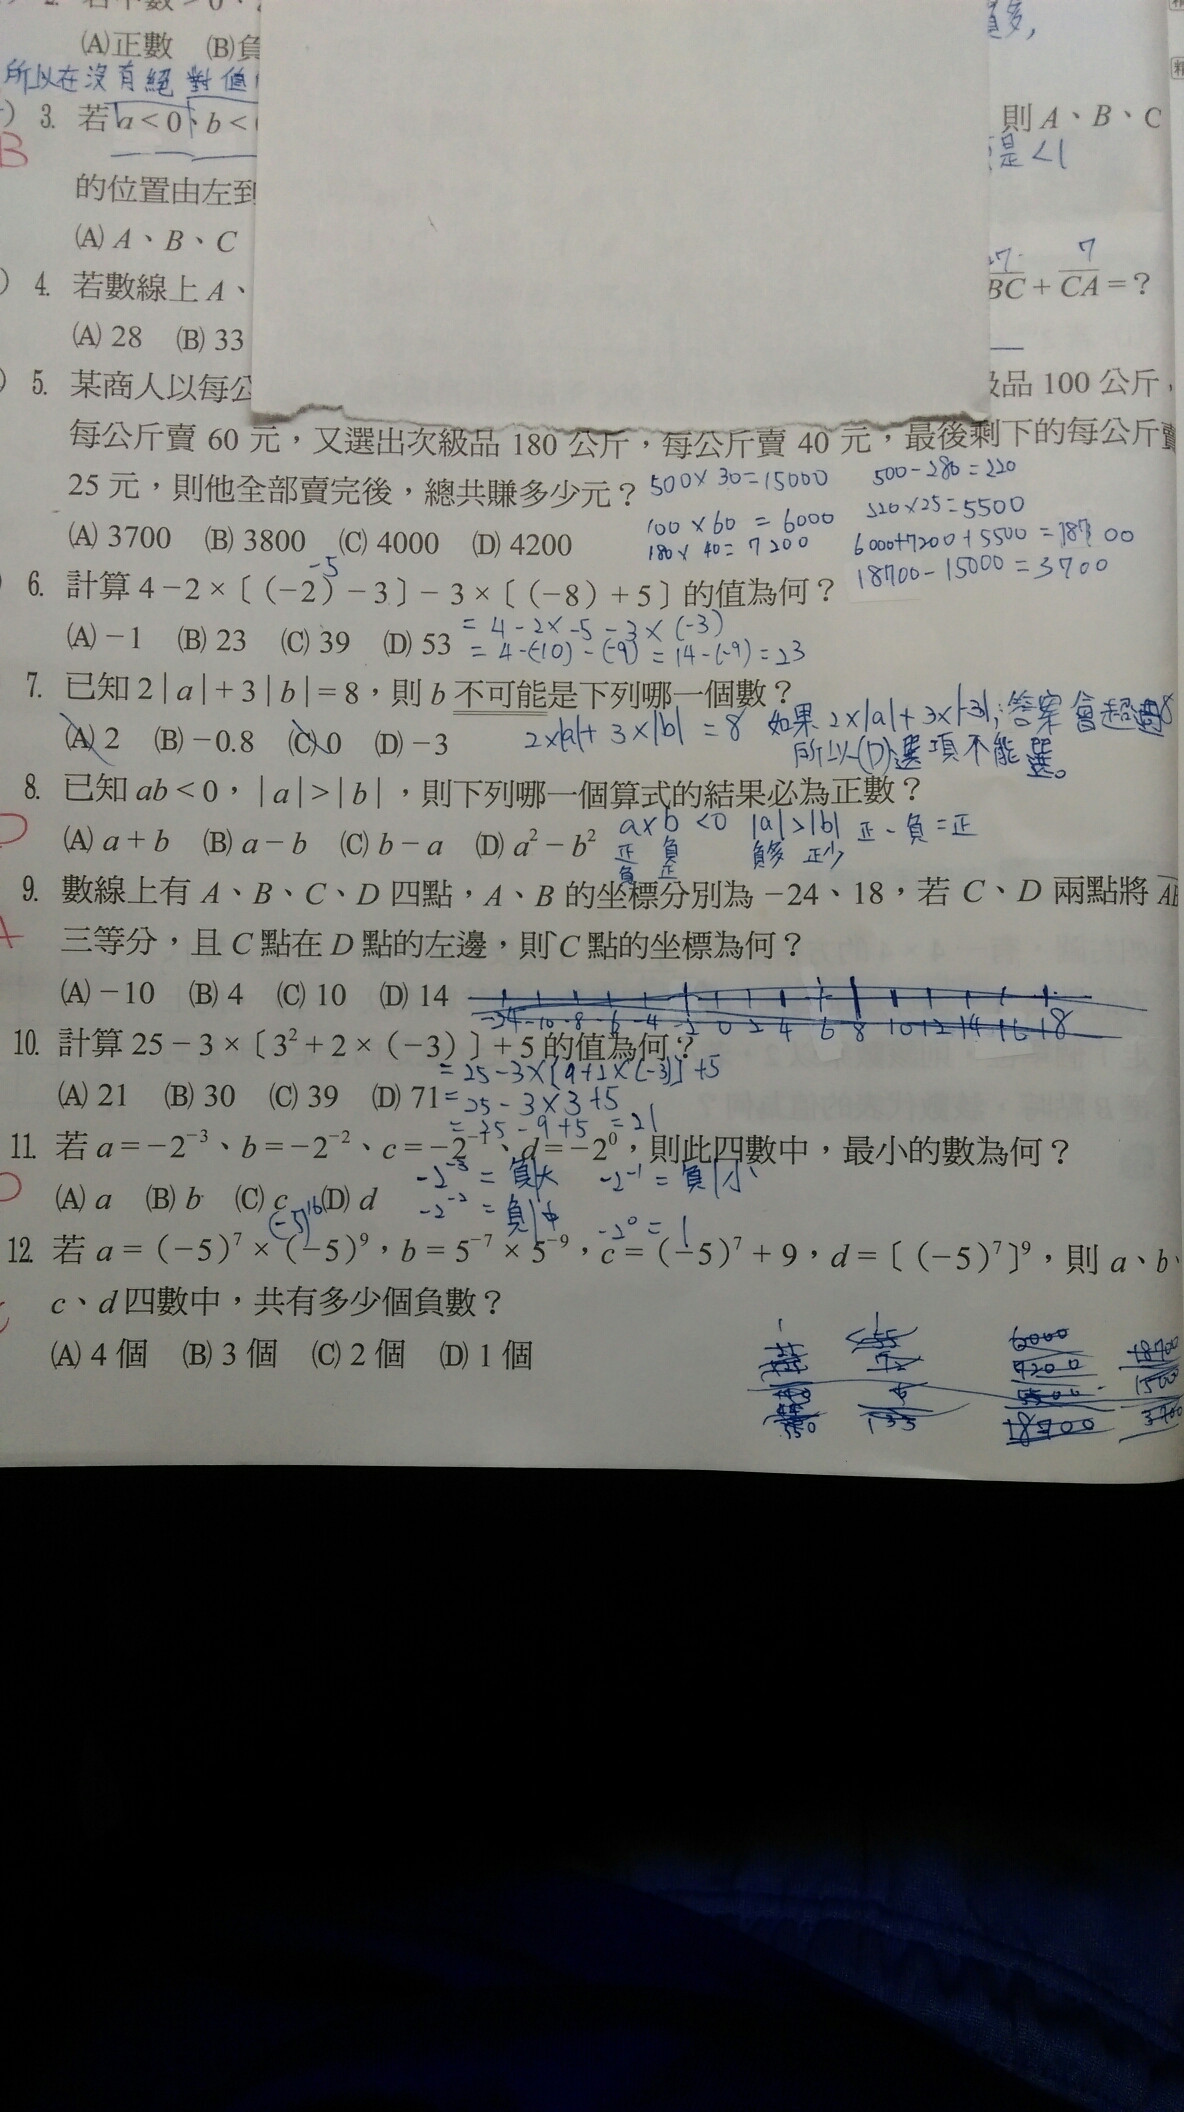 (A)正數 (B)負
所以在沒有絕對值
3. 若 a<0、b<
則 A、B、C
是<1
B
的位置由左到
(A) A、B、C
4. 若數線上 A、
7
BC + CA =？
(A) 28 (B) 33
5. 某商人以每公
級品 100 公斤，
每公斤賣 60 元，又選出次級品 180 公斤，每公斤賣 40 元，最後剩下的每公斤賣
25 元，則他全部賣完後，總共賺多少元？
500×30=15000 500-280=220
100×60=6000 220×25=5500
(A) 3700 (B) 3800 (C) 4000 (D) 4200
180×40=7200 6000+7200+5500=18700
18700-15000=3700
-5
6. 計算 4－2×〔(－2)－3〕－3×〔(－8)＋5〕的值為何？
(A)－1 (B) 23 (C) 39 (D) 53
=4-2×-5-3×(-3)
=4-(-10)-(-9)=14-(-9)=23
7. 已知 2|a|＋3|b|＝8，則 b 不可能是下列哪一個數？
(A) 2 (B)－0.8 (C) 0 (D)－3
2×|a|+3×|b|=8 如果2×|a|+3×|-3|;答案會超過8
所以(D)選項不能選。
8. 已知 ab<0，|a|>|b|，則下列哪一個算式的結果必為正數？
(A) a＋b (B) a－b (C) b－a (D) a²－b²
a×b<0 |a|>|b| 正-負=正
正 負 負多 正少
負 正
9. 數線上有 A、B、C、D 四點，A、B 的坐標分別為－24、18，若 C、D 兩點將 AB
A
三等分，且 C 點在 D 點的左邊，則 C 點的坐標為何？
(A)－10 (B) 4 (C) 10 (D) 14
-24 -10 -8 -6 -4 -2 0 2 4 6 8 10 12 14 16 18
10. 計算 25－3×〔3²＋2×(－3)〕＋5 的值為何？
=25-3×[9+2×(-3)]+5
(A) 21 (B) 30 (C) 39 (D) 71
=25-3×3+5
=25-9+5=21
11. 若 a＝－2⁻³、b＝－2⁻²、c＝－2⁻¹、d＝－2⁰，則此四數中，最小的數為何？
-2⁻³=負大 -2⁻¹=負小
(A) a (B) b (C) c (D) d
-2⁻²=負中 -2⁰=1
(-5)¹⁶
12. 若 a＝(－5)⁷×(－5)⁹，b＝5⁻⁷×5⁻⁹，c＝(－5)⁷＋9，d＝〔(－5)⁷〕⁹，則 a、b、
c、d 四數中，共有多少個負數？
(A) 4 個 (B) 3 個 (C) 2 個 (D) 1 個
6000
7200
18700
135
18700
3700